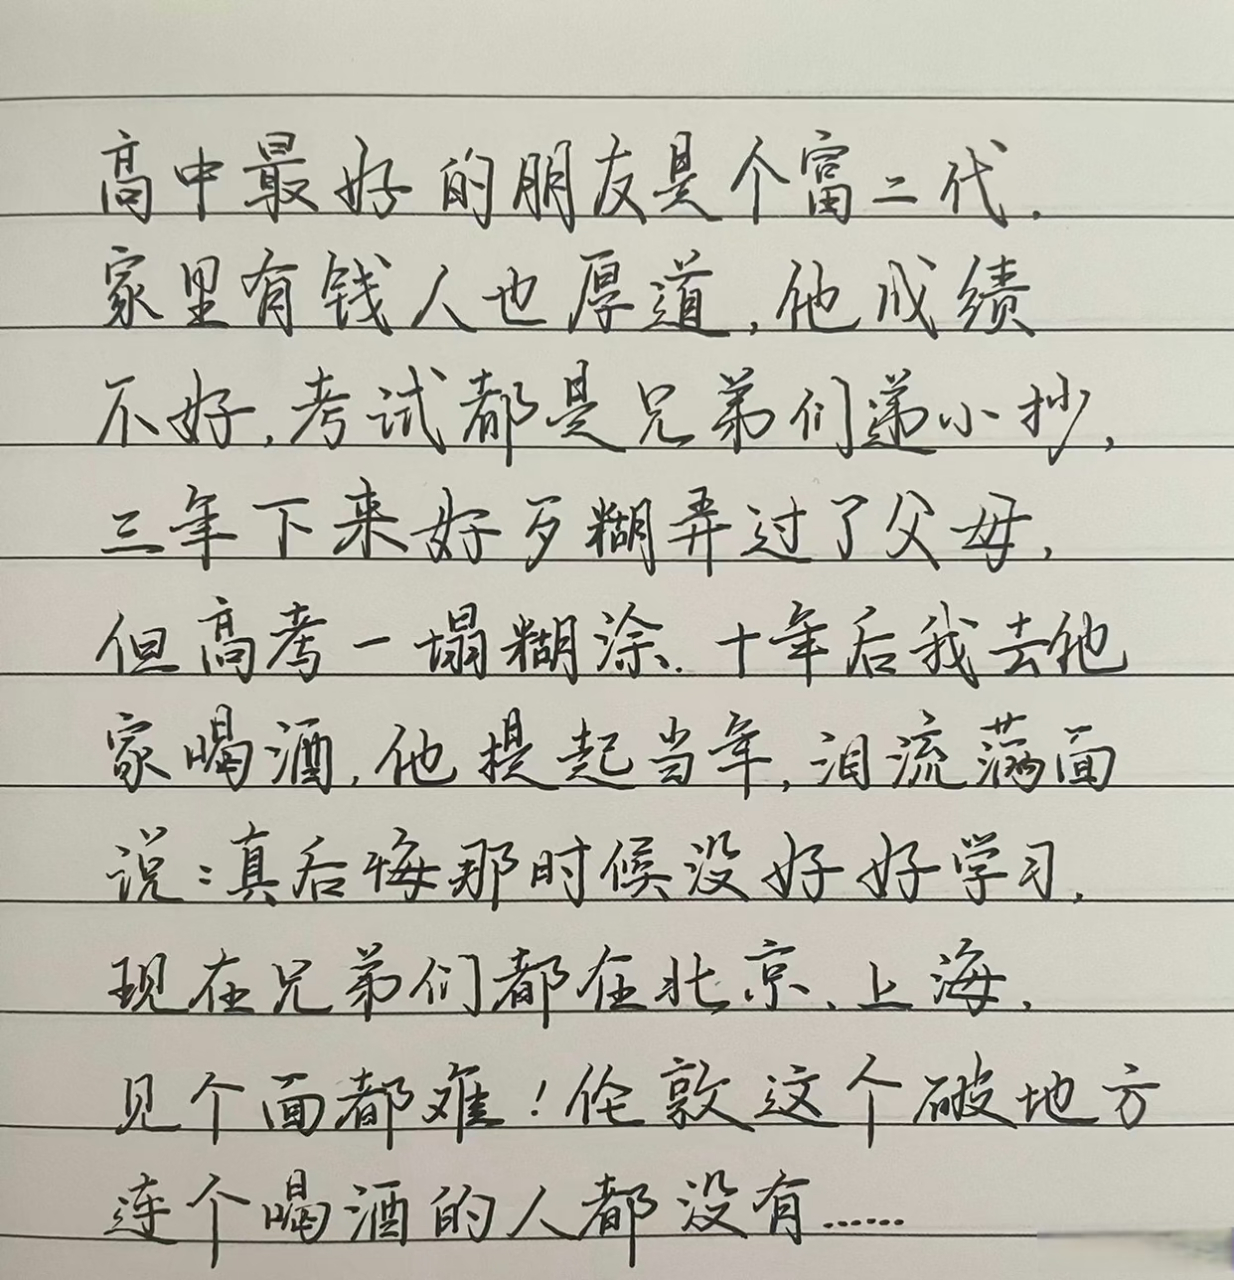 高中最好的朋友是个富二代.
家里有钱人也厚道,他成绩
不好,考试都是兄弟们递小抄,
三年下来好歹糊弄过了父母,
但高考一塌糊涂.十年后我去他
家喝酒,他提起当年,泪流满面
说:真后悔那时候没好好学习,
现在兄弟们都在北京、上海,
见个面都难!伦敦这个破地方
连个喝酒的人都没有……